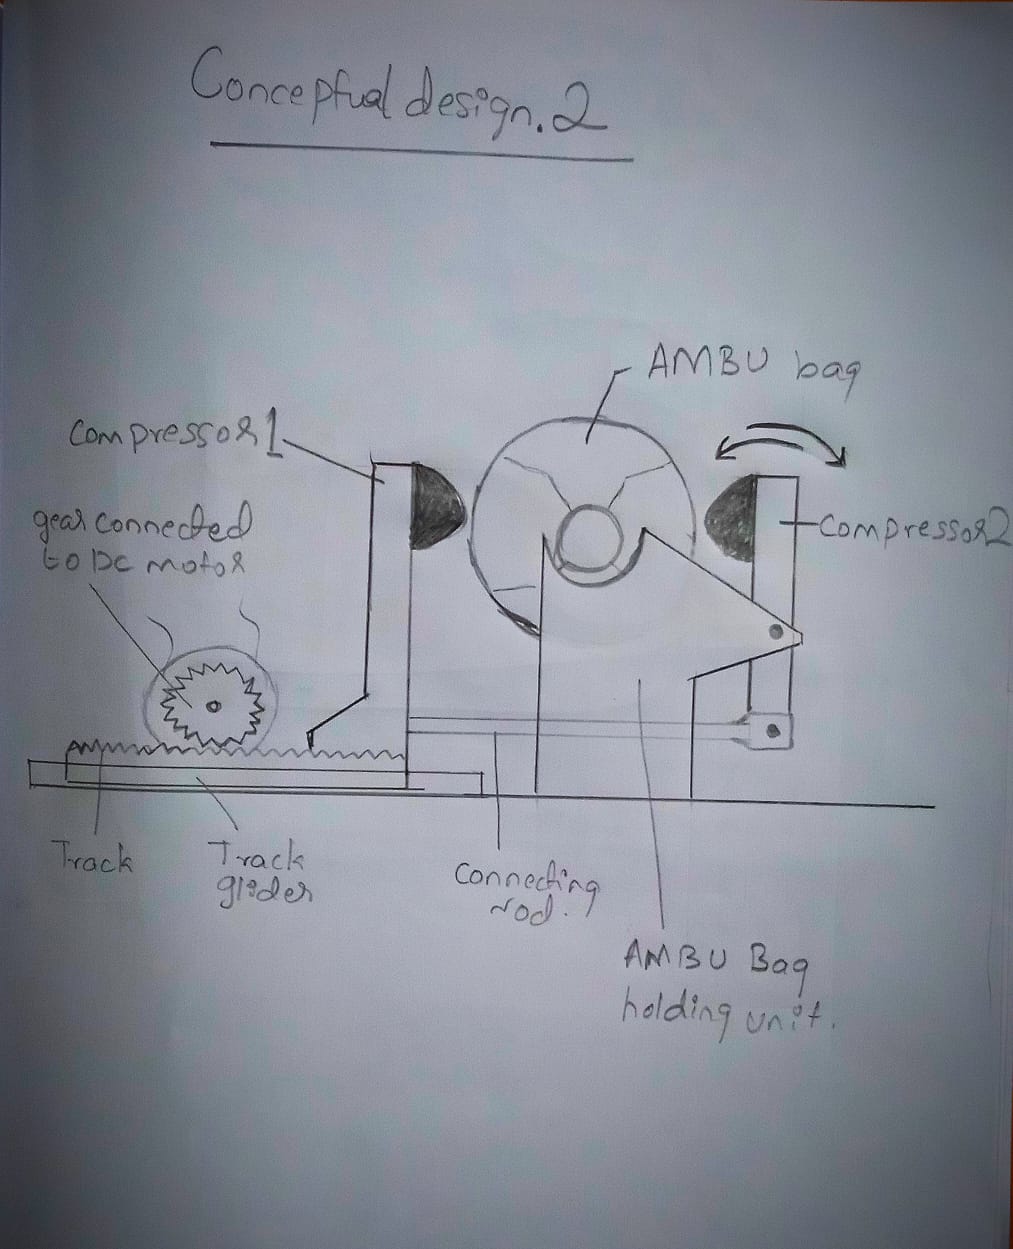 Conceptual design.2
AMBU bag
Compressor 1
gear connected
to DC motor
Compressor 2
Track
Track
glider
Connecting
rod.
AMBU Bag
holding unit.